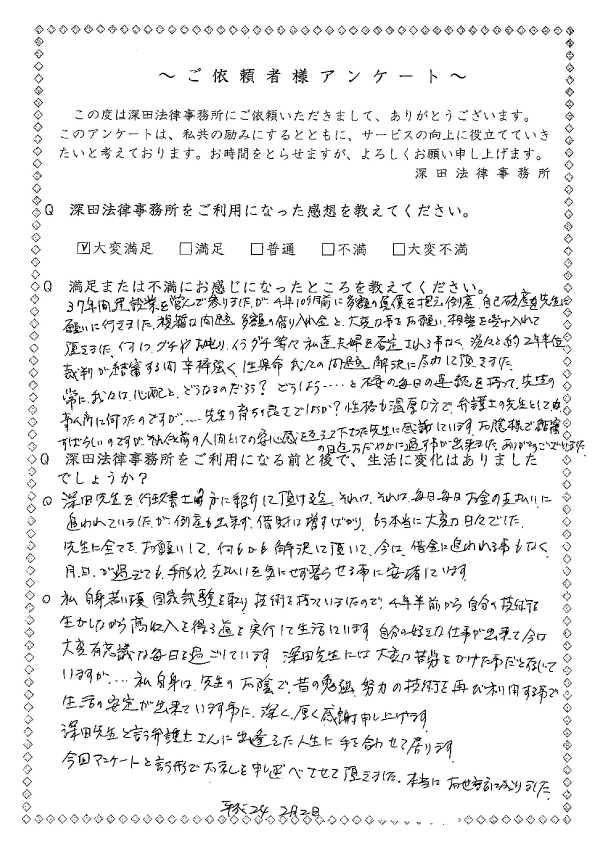 ～ご依頼者様アンケート～
この度は深田法律事務所にご依頼いただきまして、ありがとうございます。
このアンケートは、私共の励みにするとともに、サービスの向上に役立てていき
たいと考えております。お時間をとらせますが、よろしくお願い申し上げます。
深田法律事務所
Q 深田法律事務所をご利用になった感想を教えてください。
☑大変満足 □満足 □普通 □不満 □大変不満
Q 満足または不満にお感じになったところを教えてください。
37年間建設業を営んで参りましたが4年10ヶ月前に多額の負債を抱え倒産、自己破産を先生に
願いに行きました。複雑な問題、多額の借り入れ金と、大変な事をお願い、相談を受け入れて
頂きました。
裁判が結審する間辛棒強く 我々の問題解決に尽力して頂きました。
常に、我々は、心配と、どうなるのだろう？どうしよう……と 毎日の連続を持って、先生の
事ム所に伺ったのですが、……先生の育ちの良さでしょうか？性格も温厚な方で、弁護士の先生としても
すばらしいのですが、それ以前の人間としての安心感を与えて下さった先生に感謝しています。お陰様で
の日をおだやかに過す事が出来ました。ありがとうございました
Q 深田法律事務所をご利用になる前と後で、生活に変化はありました
でしょうか？
○ 深田先生を行政書士の方に紹介して頂ける迄、それは、それは、毎日毎日お金の支払いに
追われていましたが、倒産も出来ず、借財は増すばかり、もう本当に大変な日々でした。
先生に全てをお願いして、何もかも解決して頂いて、今は、借金に追われる事もなく、
月、日、が過ごても、手形や、支払いを気にせず暮らせる事に安堵しています。
○ 私自身若い頃国家試験を取り技術を持っていましたので、4年半前から自分の技術を
生かしながら高収入を得る道を実行して生活しています。自分の好きな仕事が出来て今は
大変有意義な毎日を過ごしています。深田先生には大変な苦労をかけた事だと存じて
いますが、…私自身は、先生のお陰で、昔の勉強、努力の技術を再び利用する事で
生活の安定が出来ています事に、深く、厚く感謝申し上げます。
深田先生と言う弁護士さんに出逢えた人生に手を合わせて居ります。
今回アンケートと言う形でお礼を申し述べさせて頂きました。本当にお世話になりました。
平成24 2月2日